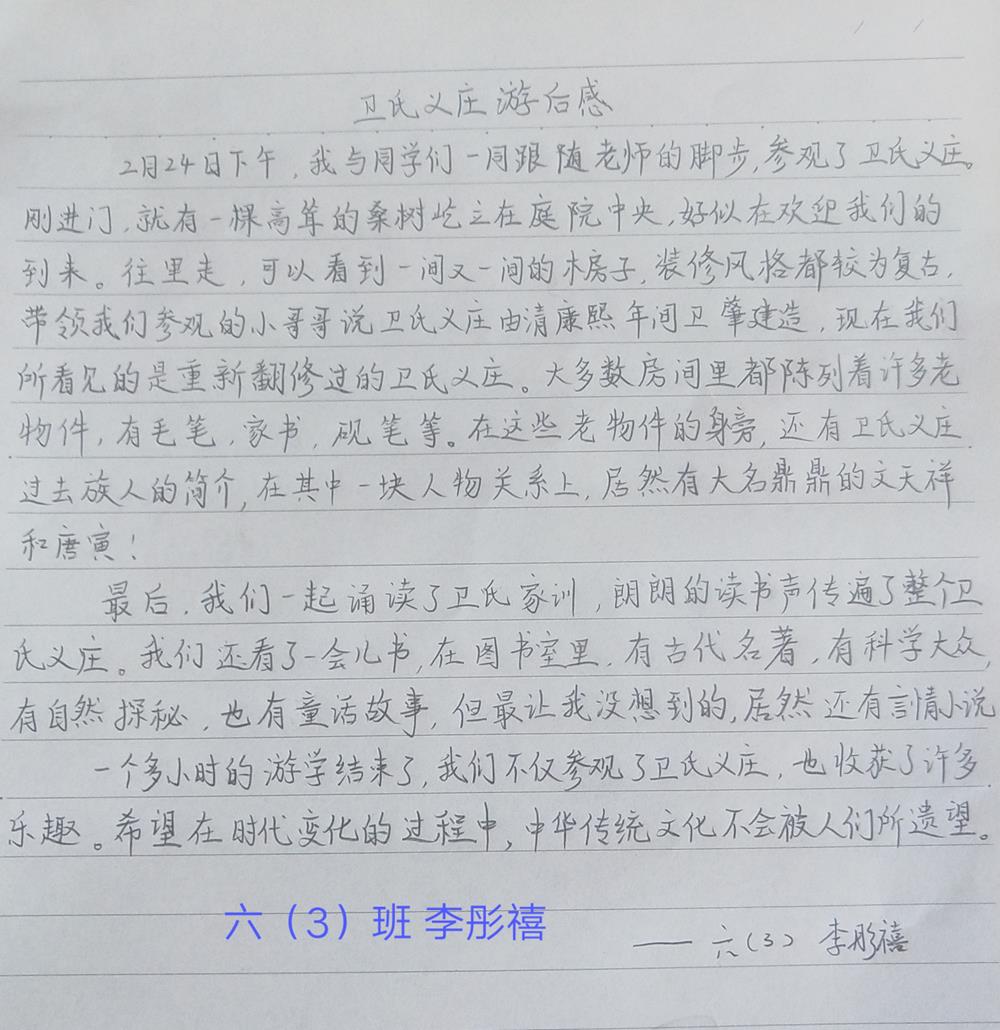 卫氏义庄游后感
2月24日下午，我与同学们一同跟随老师的脚步，参观了卫氏义庄。
刚进门，就有一棵高耸的桑树屹立在庭院中央，好似在欢迎我们的
到来。往里走，可以看到一间又一间的木房子，装修风格都较为复古，
带领我们参观的小哥哥说卫氏义庄由清康熙年间卫肇建造，现在我们
所看见的是重新翻修过的卫氏义庄。大多数房间里都陈列着许多老
物件，有毛笔，家书，砚笔等。在这些老物件的身旁，还有卫氏义庄
过去族人的简介，在其中一块人物关系上，居然有大名鼎鼎的文天祥
和唐寅！
最后，我们一起诵读了卫氏家训，朗朗的读书声传遍了整个卫
氏义庄。我们还看了一会儿书，在图书室里，有古代名著，有科学大众，
有自然探秘，也有童话故事，但最让我没想到的，居然还有言情小说
一个多小时的游学结束了，我们不仅参观了卫氏义庄，也收获了许多
乐趣。希望在时代变化的过程中，中华传统文化不会被人们所遗望。
六（3）班 李彤禧
——六（3） 李彤禧